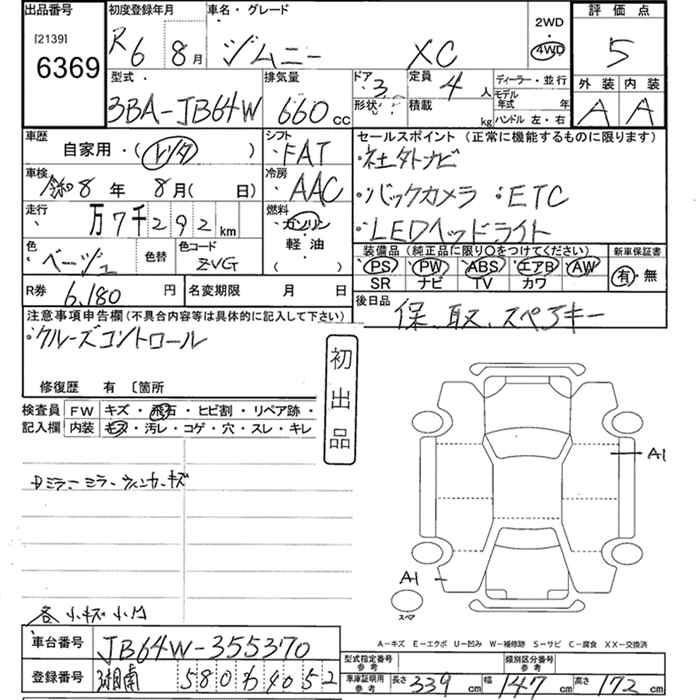 出品番号 初度登録年月 車名・グレード 2WD ・ 4WD 評価点
[2139] 6369 R6 8月 ジムニー XC 5
型式・ 排気量 ドア・3 定員 4人 ディーラー・並行 外装 内装
3BA-JB64W 660cc 形状 積載 kg モデル年式 年 ハンドル 左・右 A A
車歴 自家用・(レンタ) シフト ・FAT セールスポイント (正常に機能するものに限ります)
車検 令和8年 8月( 日) 冷房 ・AAC ・社外ナビ
走行 万7千292km 燃料 ガソリン 軽油 ( ) ・バックカメラ ・ETC
・LEDヘッドライト
色 ・ベージュ 色替 色コード ZVG 装備品 (純正品に限り○をつけてください) 新車保証書
PS PW ABS エアB AW 有・無
SR ナビ TV カワ
R券 6,180円 名変期限 月 日 後日品 保、取、スペアキー
注意事項申告欄(不具合内容等は具体的に記入して下さい)
・クルーズコントロール
修復歴 有 〔箇所
初出品
検査員記入欄 FW キズ・飛石・ヒビ割・リペア跡・
内装 キズ・汚レ・コゲ・穴・スレ・キレ
ミラー ミラーウィンカーキズ
A1
A1
スペア
各小キズ小凹
A-キズ E-エクボ U-凹み W-補修跡 S-サビ C-腐食 XX-交換済
車台番号 JB64W-355370 型式指定番号 参考 類別区分番号 参考
登録番号 湘南 580 わ 4052 車庫証明用 参考 長さ 339cm 幅 147cm 高さ 172cm